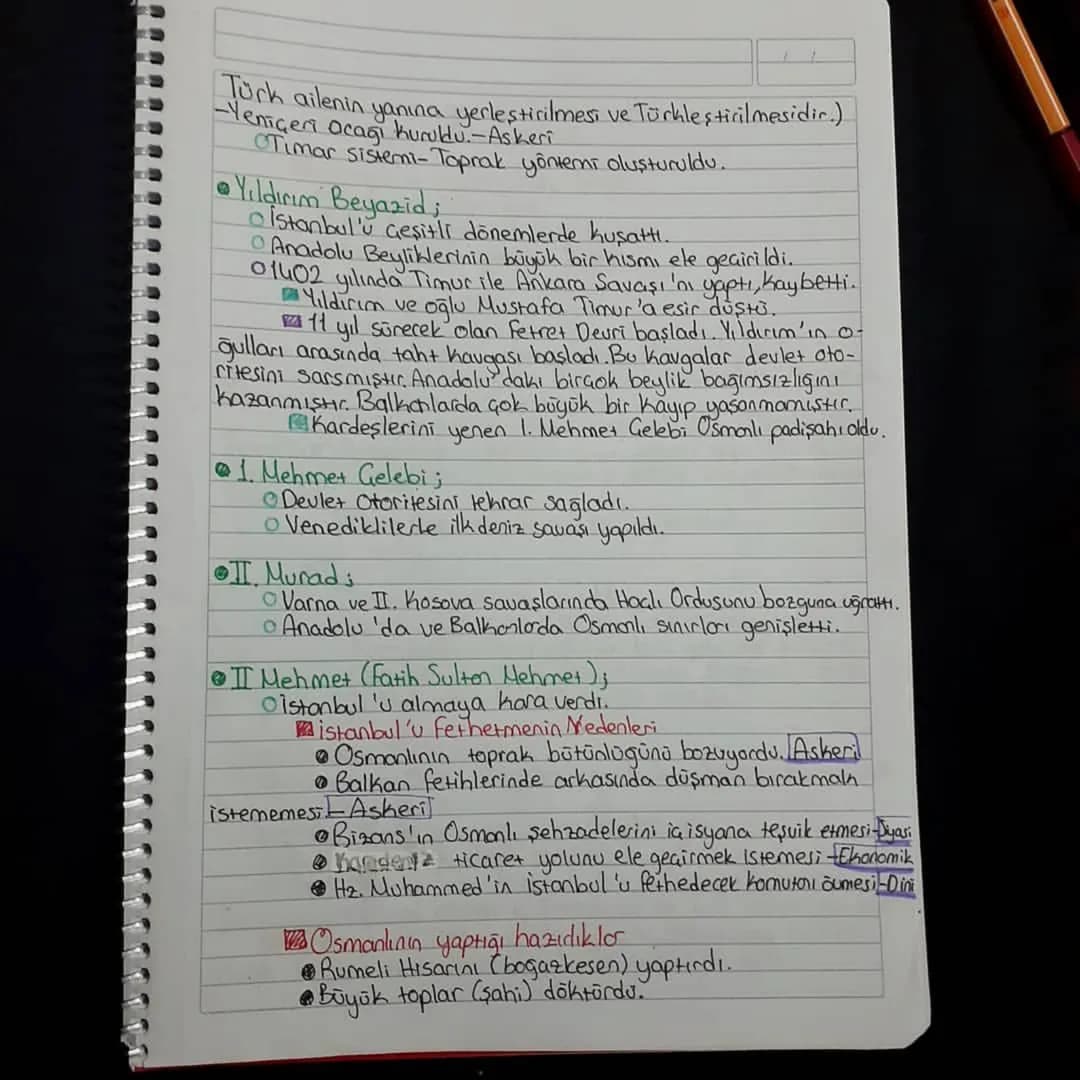 Türk ailenin yanına yerleştirilmesi ve Türkleştirilmesidir.)
-Yeniçeri ocağı kuruldu.-Askeri
Tımar sistemi-Toprak yöntemi oluşturuldu.
Yıldırım Beyazid;
İstanbul'u çeşitli dönemlerde kuşattı.
Anadolu Beyliklerinin büyük bir kısmı ele geçirildi.
1402 yılında Timur ile Ankara Savaşı'nı yaptı, kaybetti.
Yıldırım ve oğlu Mustafa Timur'a esir düştü.
11 yıl sürecek olan Fetret Devri başladı. Yıldırım'ın o-
ğulları arasında taht kavgası başladı. Bu kavgalar devlet oto-
ritesini sarsmıştır. Anadolu'daki birçok beylik bağımsızlığını
kazanmıştır. Balkanlarda çok büyük bir kayıp yaşanmamıştır.
Kardeşlerini yenen 1. Mehmet Çelebi Osmanlı padişahı oldu.
1. Mehmet Çelebi;
Devlet Otoritesini tekrar sağladı.
Venediklilerle ilk deniz savaşı yapıldı.
II. Murad;
Varna ve II. Kosova savaşlarında Haçlı Ordusunu bozguna uğrattı.
Anadolu'da ve Balkanlarda Osmanlı sınırları genişletti.
II Mehmet (Fatih Sultan Mehmet);
İstanbul'u almaya kara verdi.
İstanbul'u Fethetmenin Nedenleri
Osmanlının toprak bütünlüğünü bozuyordu. Askeri
Balkan fetihlerinde arkasında düşman bırakmak
istememesi-Askeri
Bizans'ın Osmanlı şehzadelerini iç isyana teşvik etmesi-Siyasi
Karadeniz ticaret yolunu ele geçirmek istemesi-Ekonomik
Hz. Muhammed'in İstanbul'u fethedecek komutanı övmesi-Dini
Osmanlının yaptığı hazıdıklar
Rumeli Hisarını (boğazkesen) yaptırdı.
Büyük toplar (şahi) döktürdü.